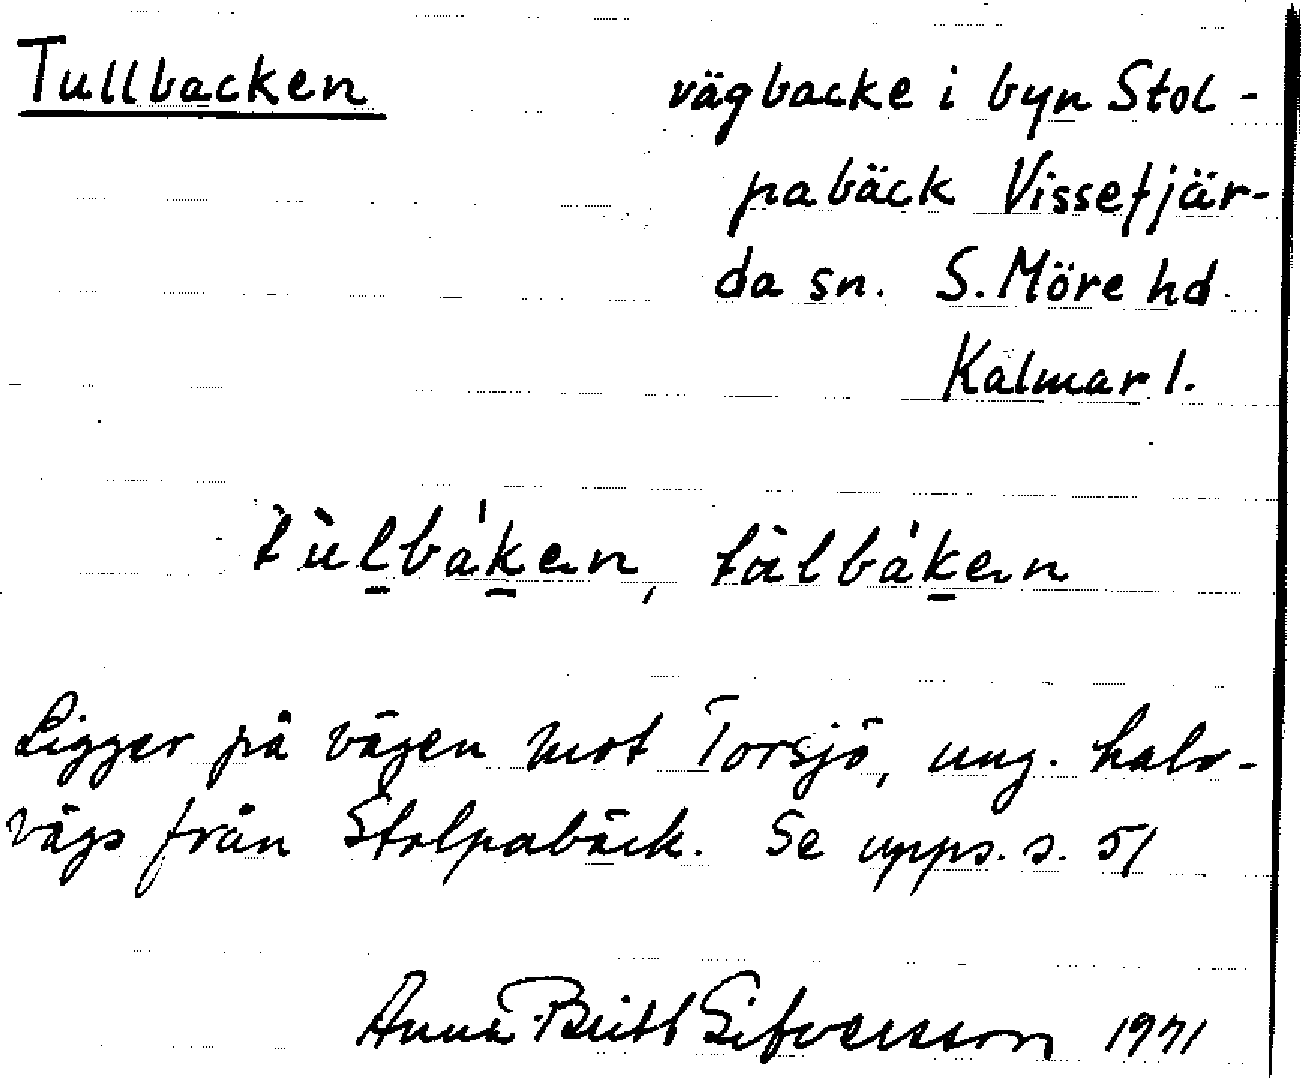 Tullbacken vägbacke i byn Stol-
pabäck Vissefjär-
da sn. S. Möre hd.
Kalmar l.
tùlbáken, tålbáken
Ligger på vägen mot Torsjö, ung. halv-
vägs från Stolpabäck. Se upps. s. 51
Anna-Britt Sifversson 1971